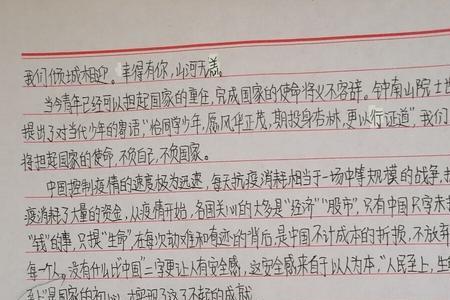 我们倾城相迎。幸得有你，山河无恙。
当今青年已经可以担起国家的重任，完成国家的使命将义不容辞。钟南山院士也
提出了对当代少年的寄语“恰同学少年，愿风华正茂，期投身杏林，更以行证道”，我们
将担起国家的使命，不负自己，不负国家。
中国控制疫情的速度极为迅速，每天抗疫消耗相当于一场中等规模的战争，
疫消耗了大量的资金，从疫情开始，各国关心的大多是“经济”“股市”，只有中国只字未
“钱”的事，只提“生命”，在每次劫难和奇迹的背后，是中国不计成本的折损，不放弃
每一个人。没有什么比“中国”二字更让人有安全感，这安全感来自于以人为本，“人民至上，生
上”是国家的初心，才实现了这了不起的成就